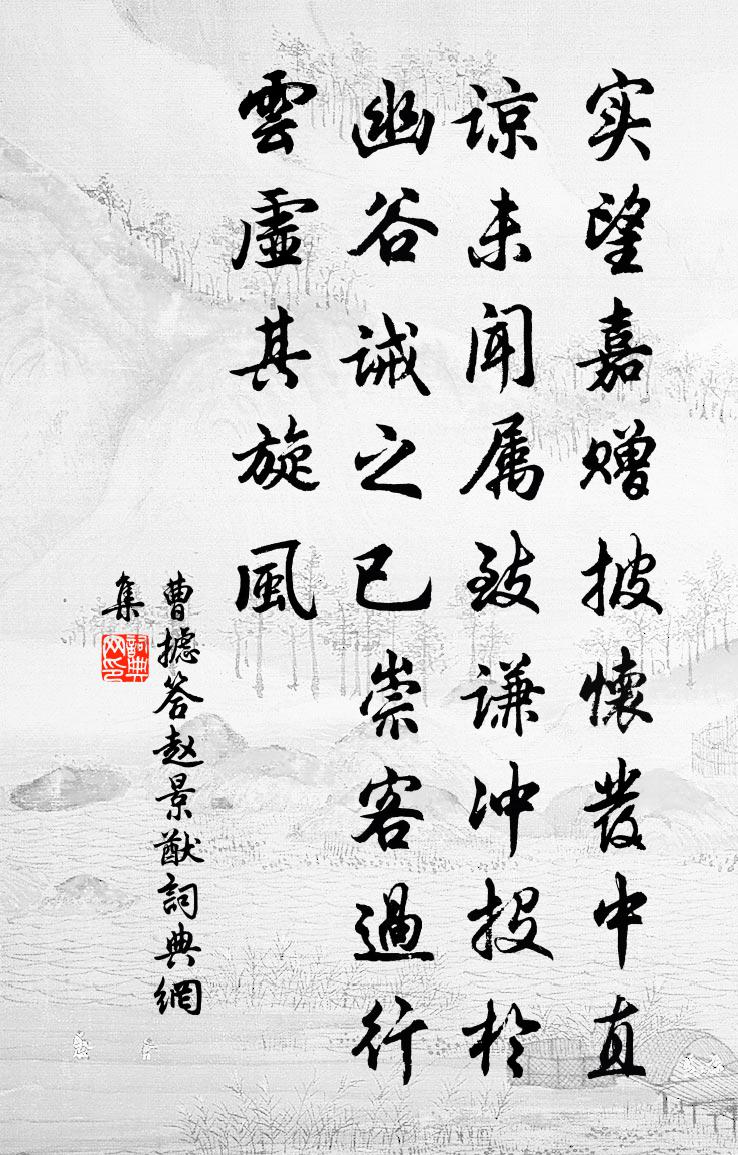 实望嘉赠披懷發中直
谅未闻属致谦冲投於
幽谷诫之已崇客過行
雲虚其旋風
曹摅答赵景猷詞典網
集
詞典
网印